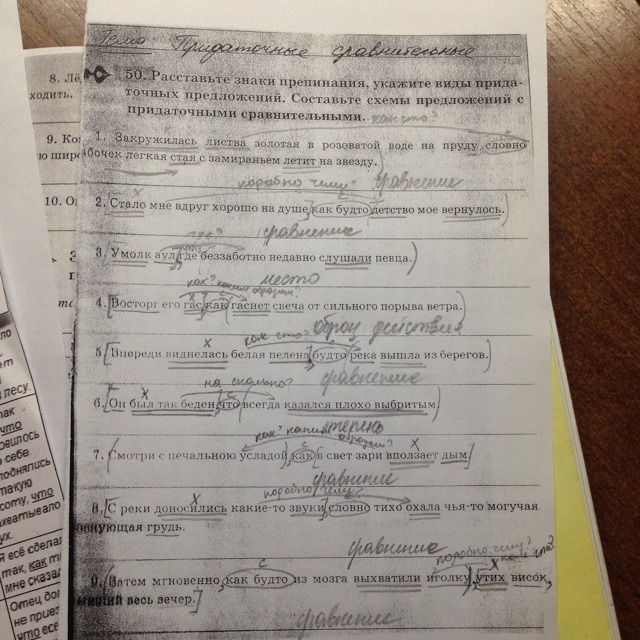 Тема Придаточные сравнительные
8. Лё
ходить.
50. Расставьте знаки препинания, укажите виды прида-
точных предложений. Составьте схемы предложений с
придаточными сравнительными. как что?
9. Ко
ю шир
1. Закружилась листва золотая в розоватой воде на пруду словно
бабочек легкая стая с замираньем летит на звезду.
подобно чему? сравнение
10. О
2. Стало мне вдруг хорошо на душе, как будто детство мое вернулось.
где? сравнение
3. Умолк аул, где беззаботно недавно слушали певца.
как? каким образом? место
4. Восторг его гас, как гаснет свеча от сильного порыва ветра.
как что? образ действия
5. Впереди виднелась белая пелена, будто река вышла из берегов.
на сколько? сравнение
6. Он был так беден, что всегда казался плохо выбритым.
как? каким образом? степень
7. Смотри с печальною усладой, как в свет зари вползает дым.
подобно чему? сравнение
8. С реки доносились какие-то звуки, словно тихо охала чья-то могучая
тоскующая грудь.
сравнение подобно чему?
9. Затем мгновенно, как будто из мозга выхватили иголку, утих висок,
весь вечер.
сравнение
лесу.
так
что
себе.
такую
что
так, как
мне сказа